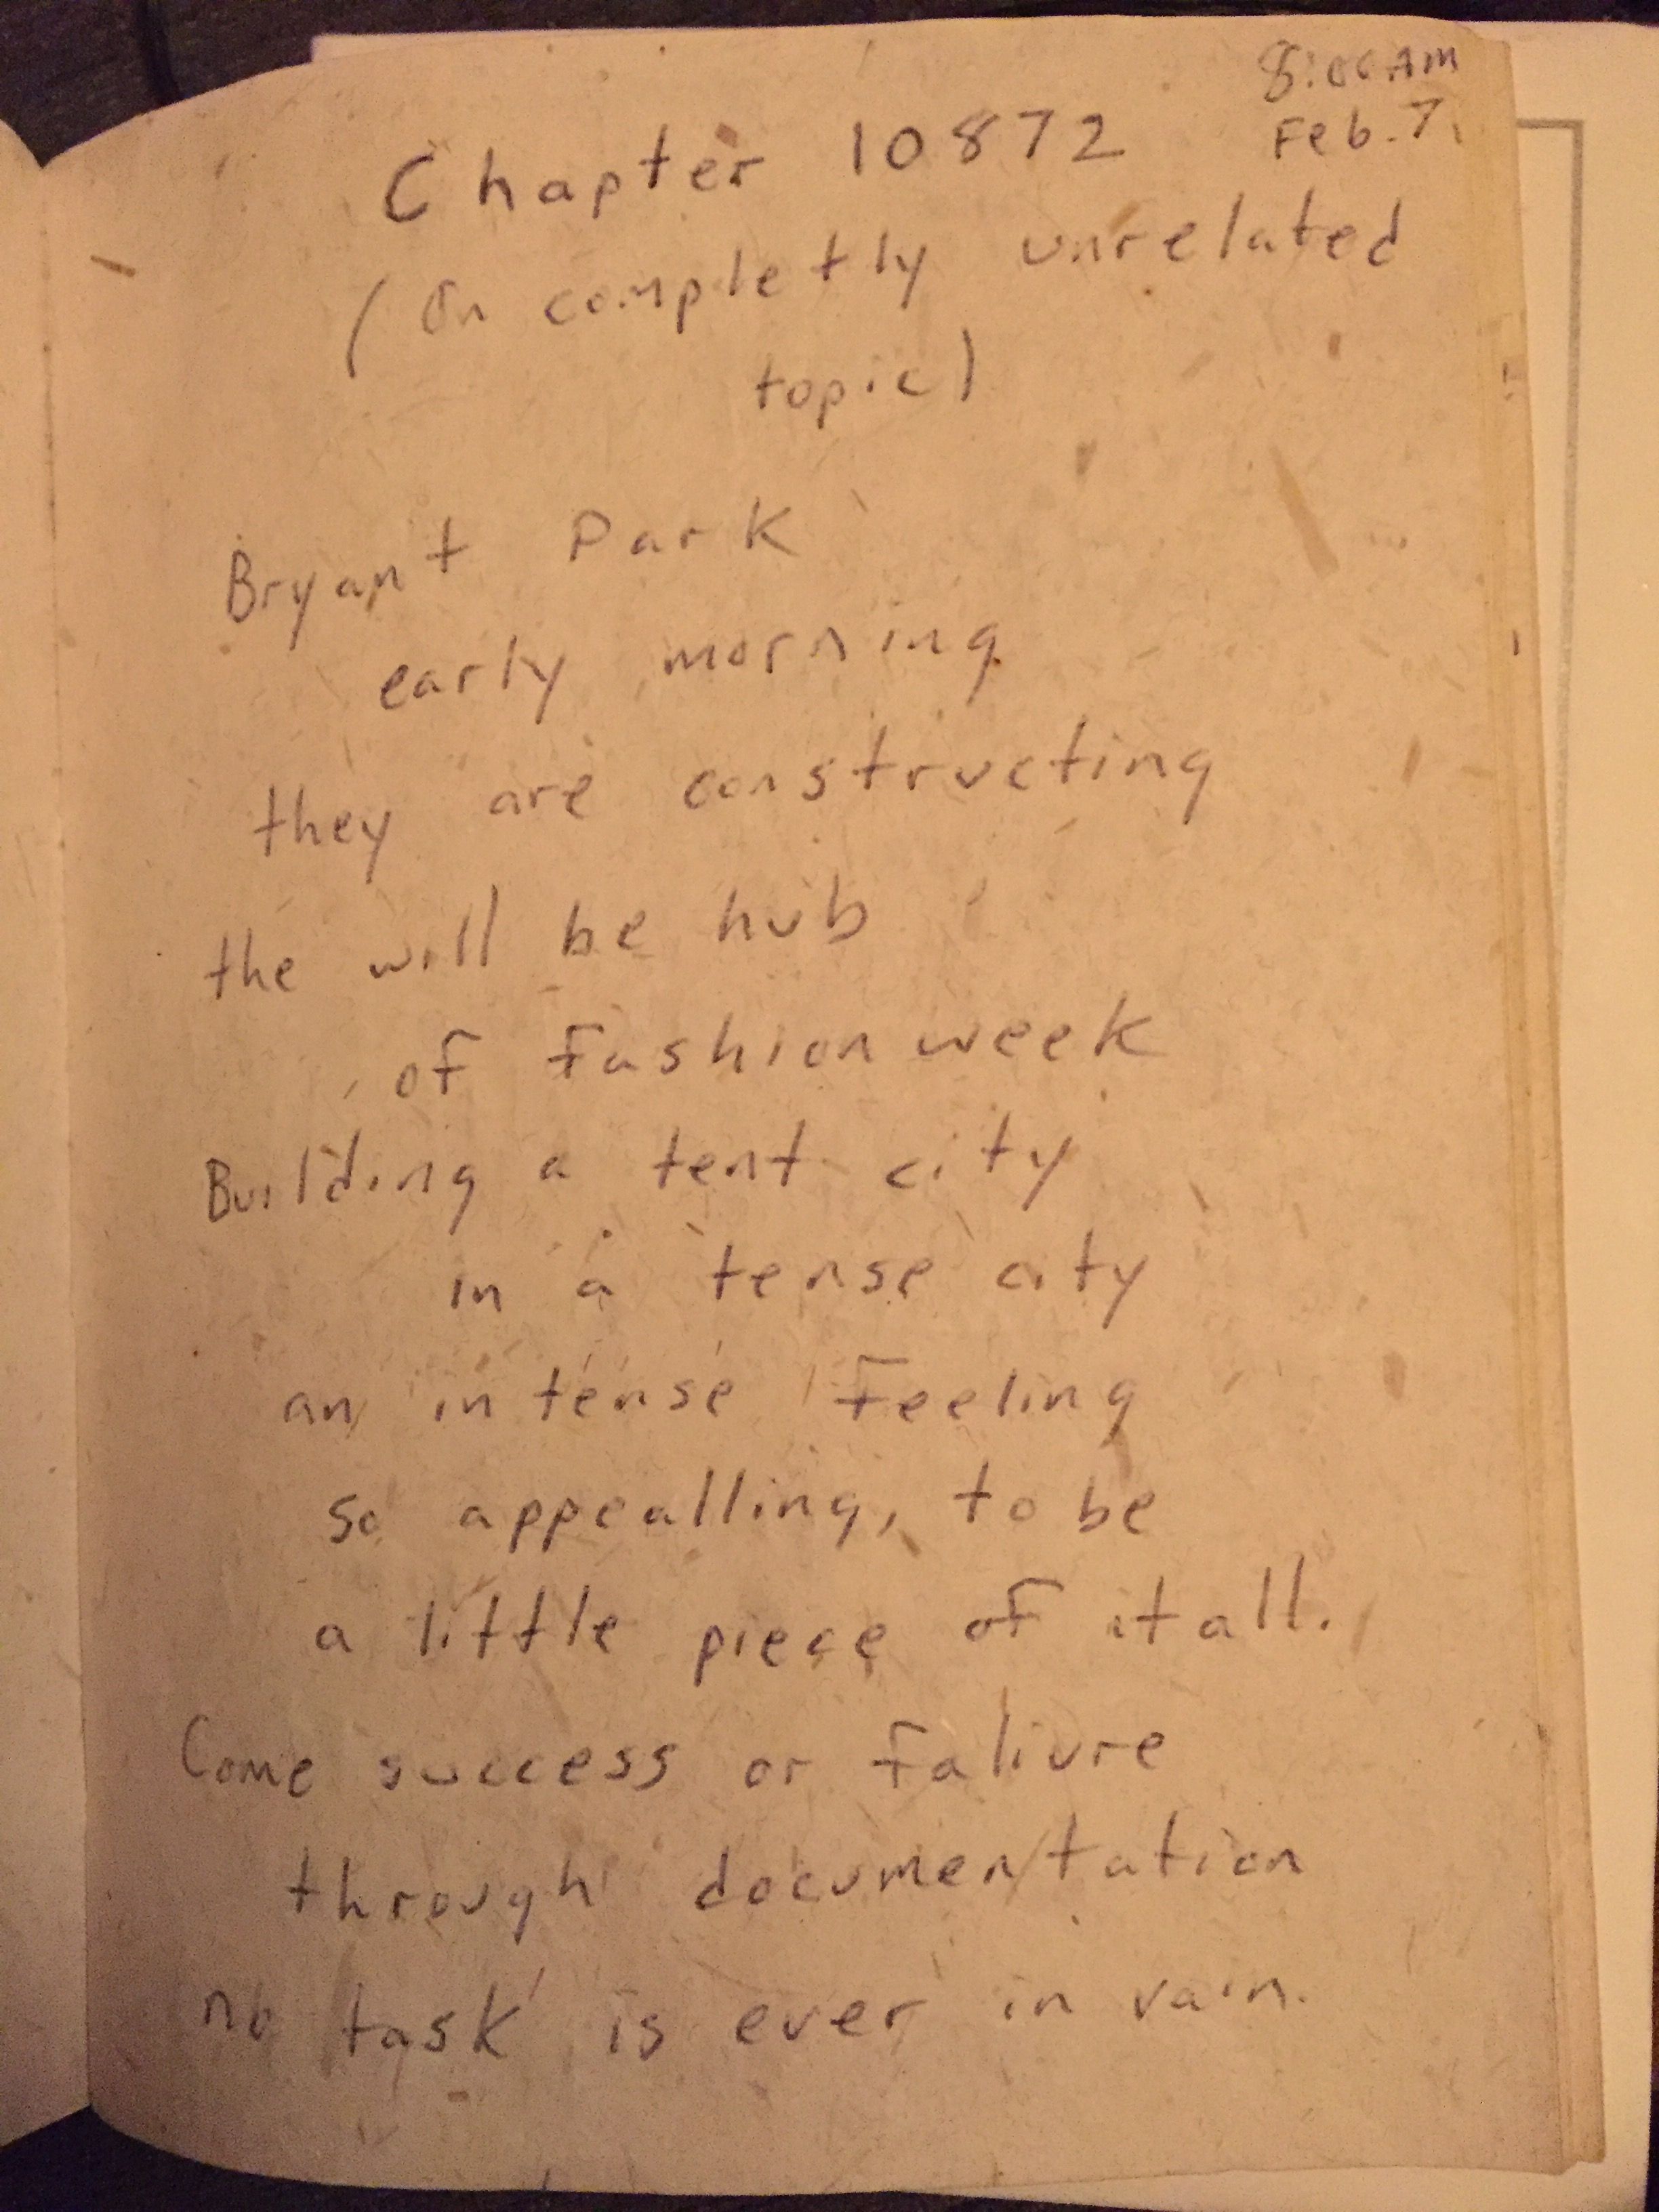 8:00 AM
Feb. 7.
Chapter 10872
(On completly unrelated
topic)
Bryant Park
early morning
they are constructing
the will be hub
of fashion week
Building a tent city
in a tense city
an intense feeling
so appealling, to be
a little piece of it all.
Come success or faliure
through documentation
no task is ever in vain.